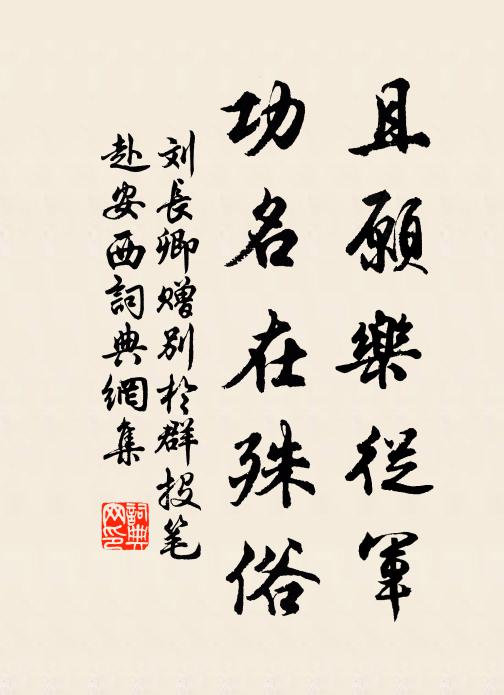 且願樂從軍
功名在殊俗
刘長卿赠別於群投笔
赴安西詞典網集
詞典
网印